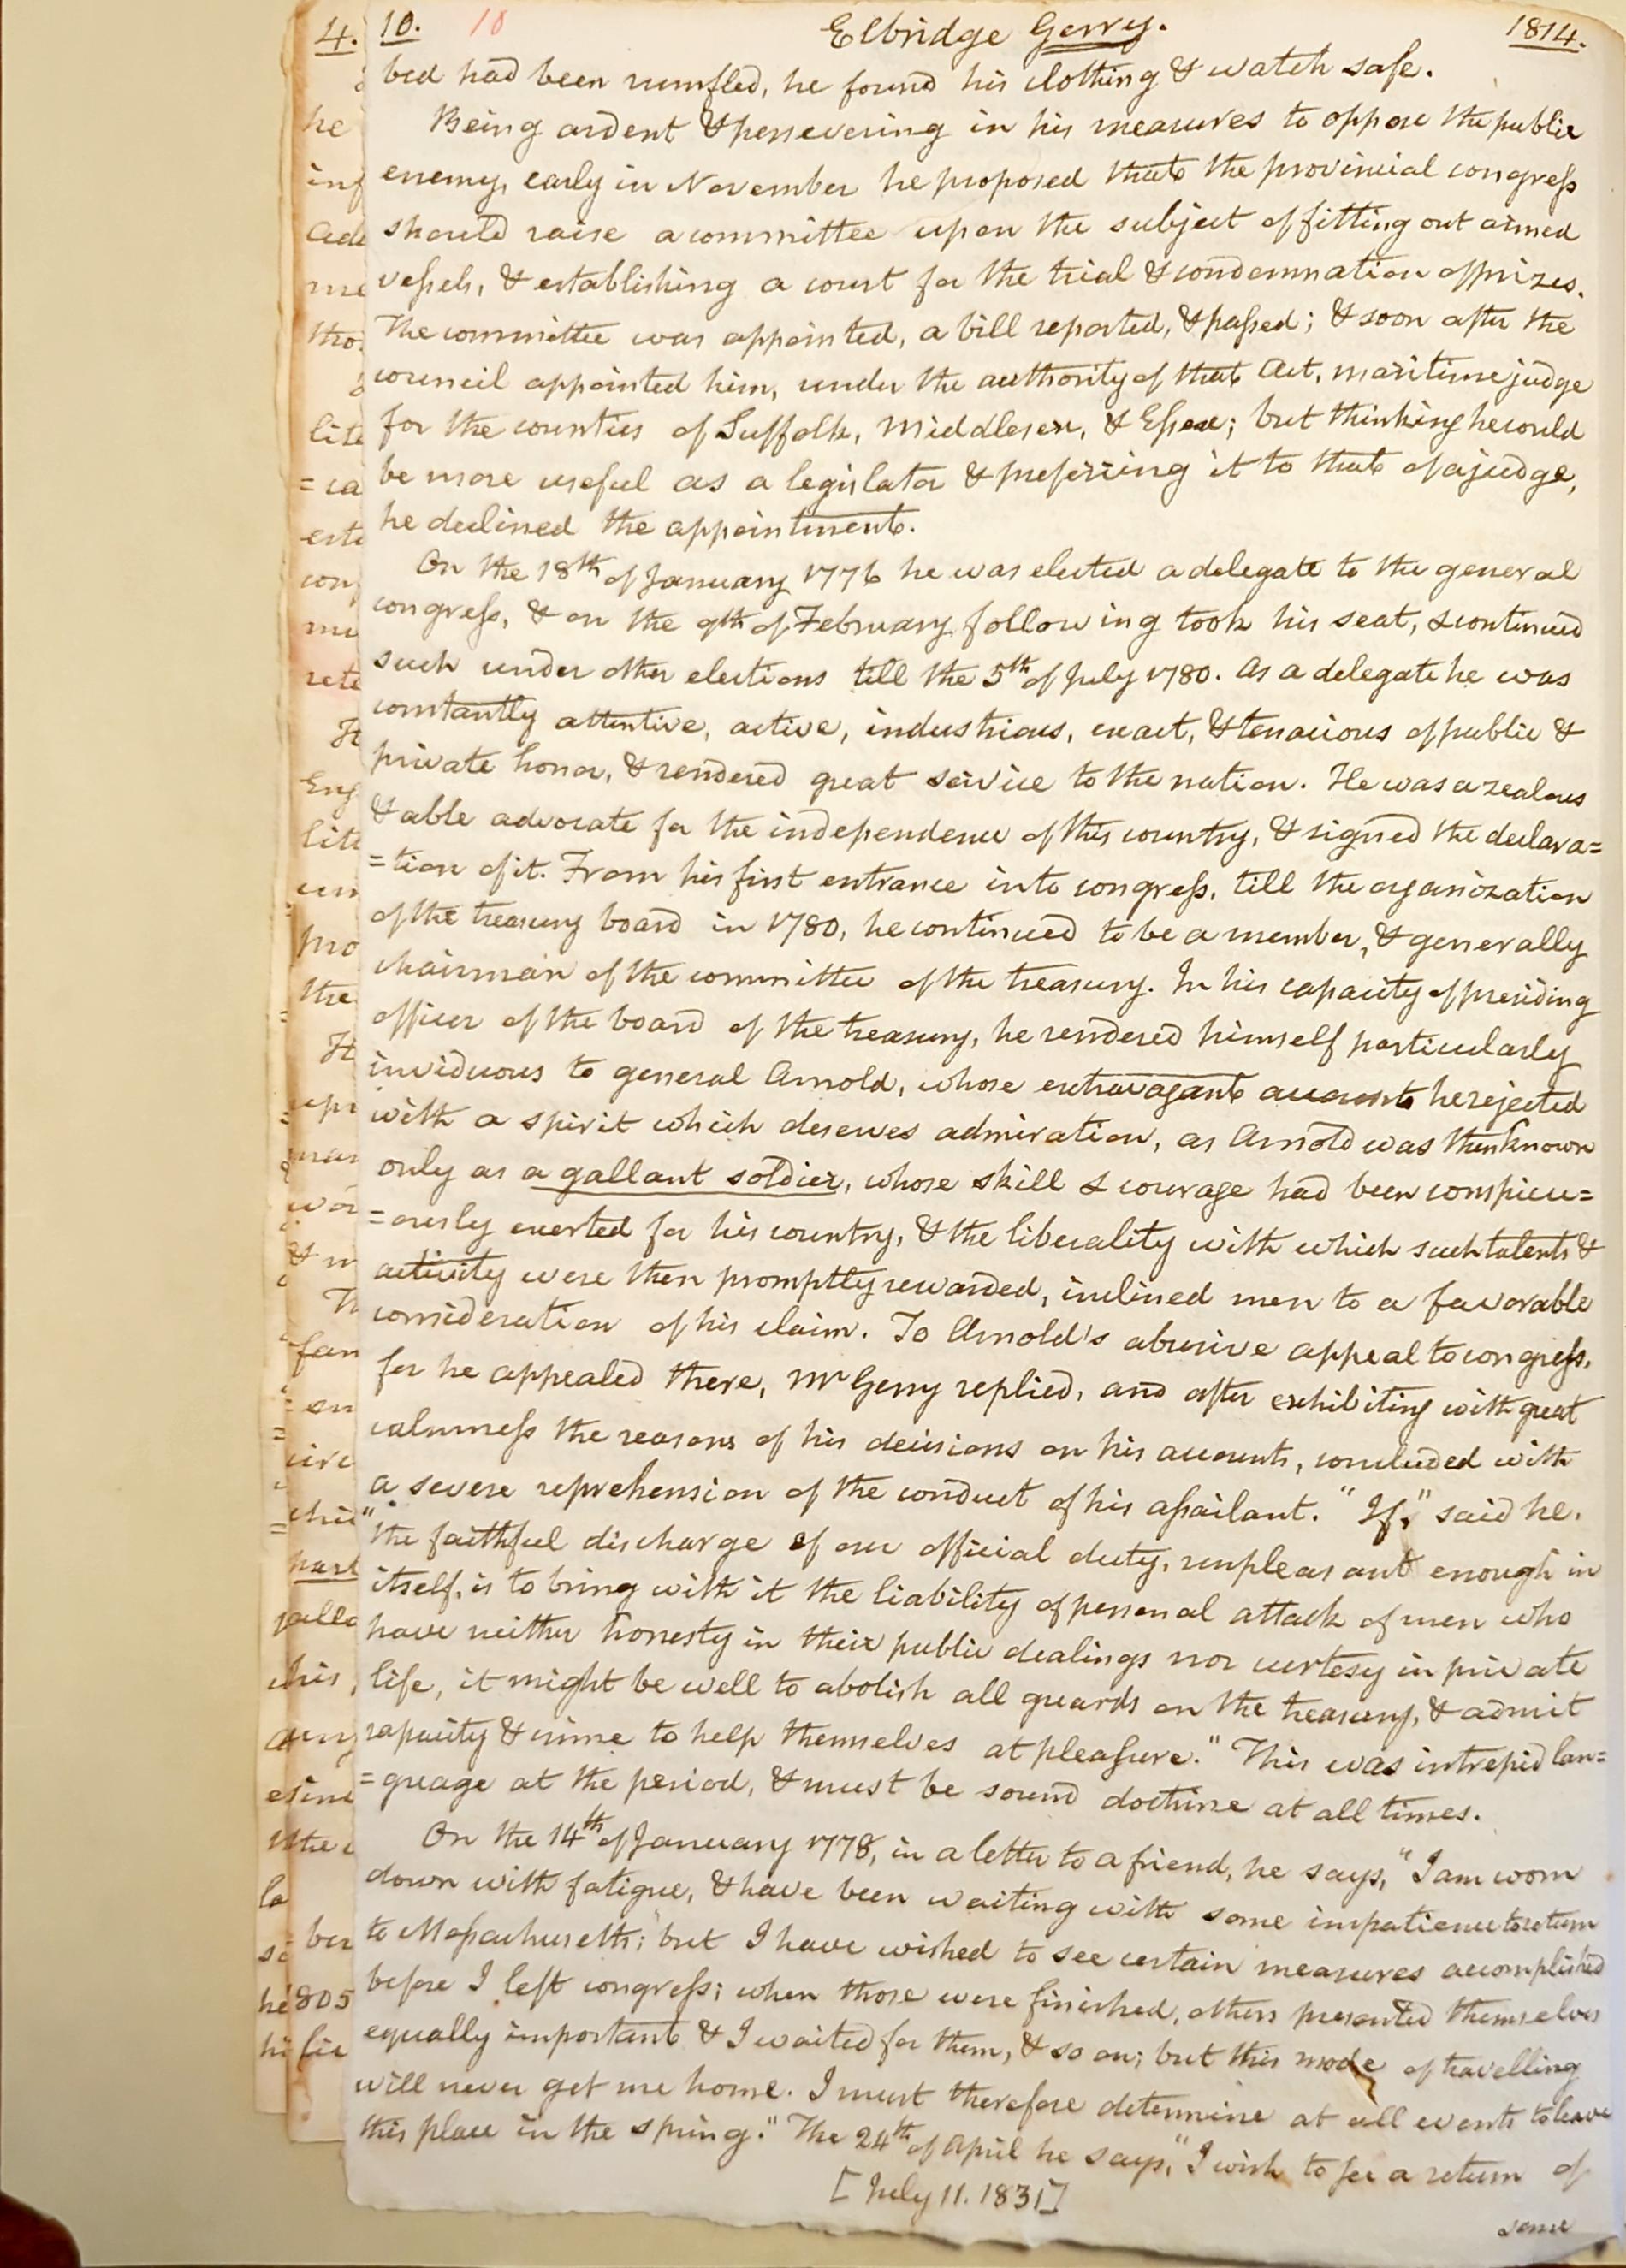 10. 10 Elbridge Gerry. 1814.
bed had been rumfled, he found his clothing & watch safe.
Being ardent & persevering in his measures to oppose the public
enemy, early in November he proposed that the provincial congreſs
should raise a committee upon the subject of fitting out armed
veſsels, & establishing a court for the trial & condemnation of prizes.
The committee was appointed, a bill reported, & paſsed; & soon after the
council appointed him, under the authority of that act, maritime judge
for the counties of Suffolk, Middlesex, & Eſsex; but thinking he could
be more useful as a legislator & preferring it to that of a judge,
he declined the appointment.
On the 18th of January 1776 he was elected a delegate to the general
congreſs, & on the 9th of February following took his seat, & continued
such under other elections till the 5th of July 1780. As a delegate he was
constantly attentive, active, industrious, exact, & tenacious of public &
private honor, & rendered great service to the nation. He was a zealous
& able advocate for the independence of this country, & signed the declara=
=tion of it. From his first entrance into congreſs, till the organization
of the treasury board in 1780, he continued to be a member, & generally
chairman of the committee of the treasury. In his capacity of presiding
officer of the board of the treasury, he rendered himself particularly
inviduous to general Arnold, whose extravagant accounts he rejected
with a spirit which deserves admiration, as Arnold was then known
only as a gallant soldier, whose skill & courage had been conspicu=
=ously exerted for his country, & the liberality with which such talents &
activity were then promptly rewarded, inclined men to a favorable
consideration of his claim. To Arnold's abusive appeal to congreſs,
for he appealed there, Mr Gerry replied, and after exhibiting with great
calmneſs the reasons of his decisions on his accounts, concluded with
a severe reprehension of the conduct of his aſsailant. "If," said he,
"the faithful discharge of our official duty, unpleasant enough in
itself, is to bring with it the liability of personal attack of men who
have neither honesty in their public dealings nor curtesy in private
life, it might be well to abolish all guards on the treasury, & admit
rapacity & crime to help themselves at pleaſure." This was intrepid lan=
=guage at the period, & must be sound doctrine at all times.
On the 14th of January 1778, in a letter to a friend, he says, "I am worn
down with fatigue, & have been waiting with some impatience to return
to Maſsachusetts; but I have wished to see certain measures accomplished
before I left congreſs; when those were finished, others presented themselves
equally important & I waited for them, & so on; but this mode of travelling
will never get me home. I must therefore determine at all events to leave
this place in the spring." The 24th of April he says, "I wish to see a return of
[July 11. 1831]
some